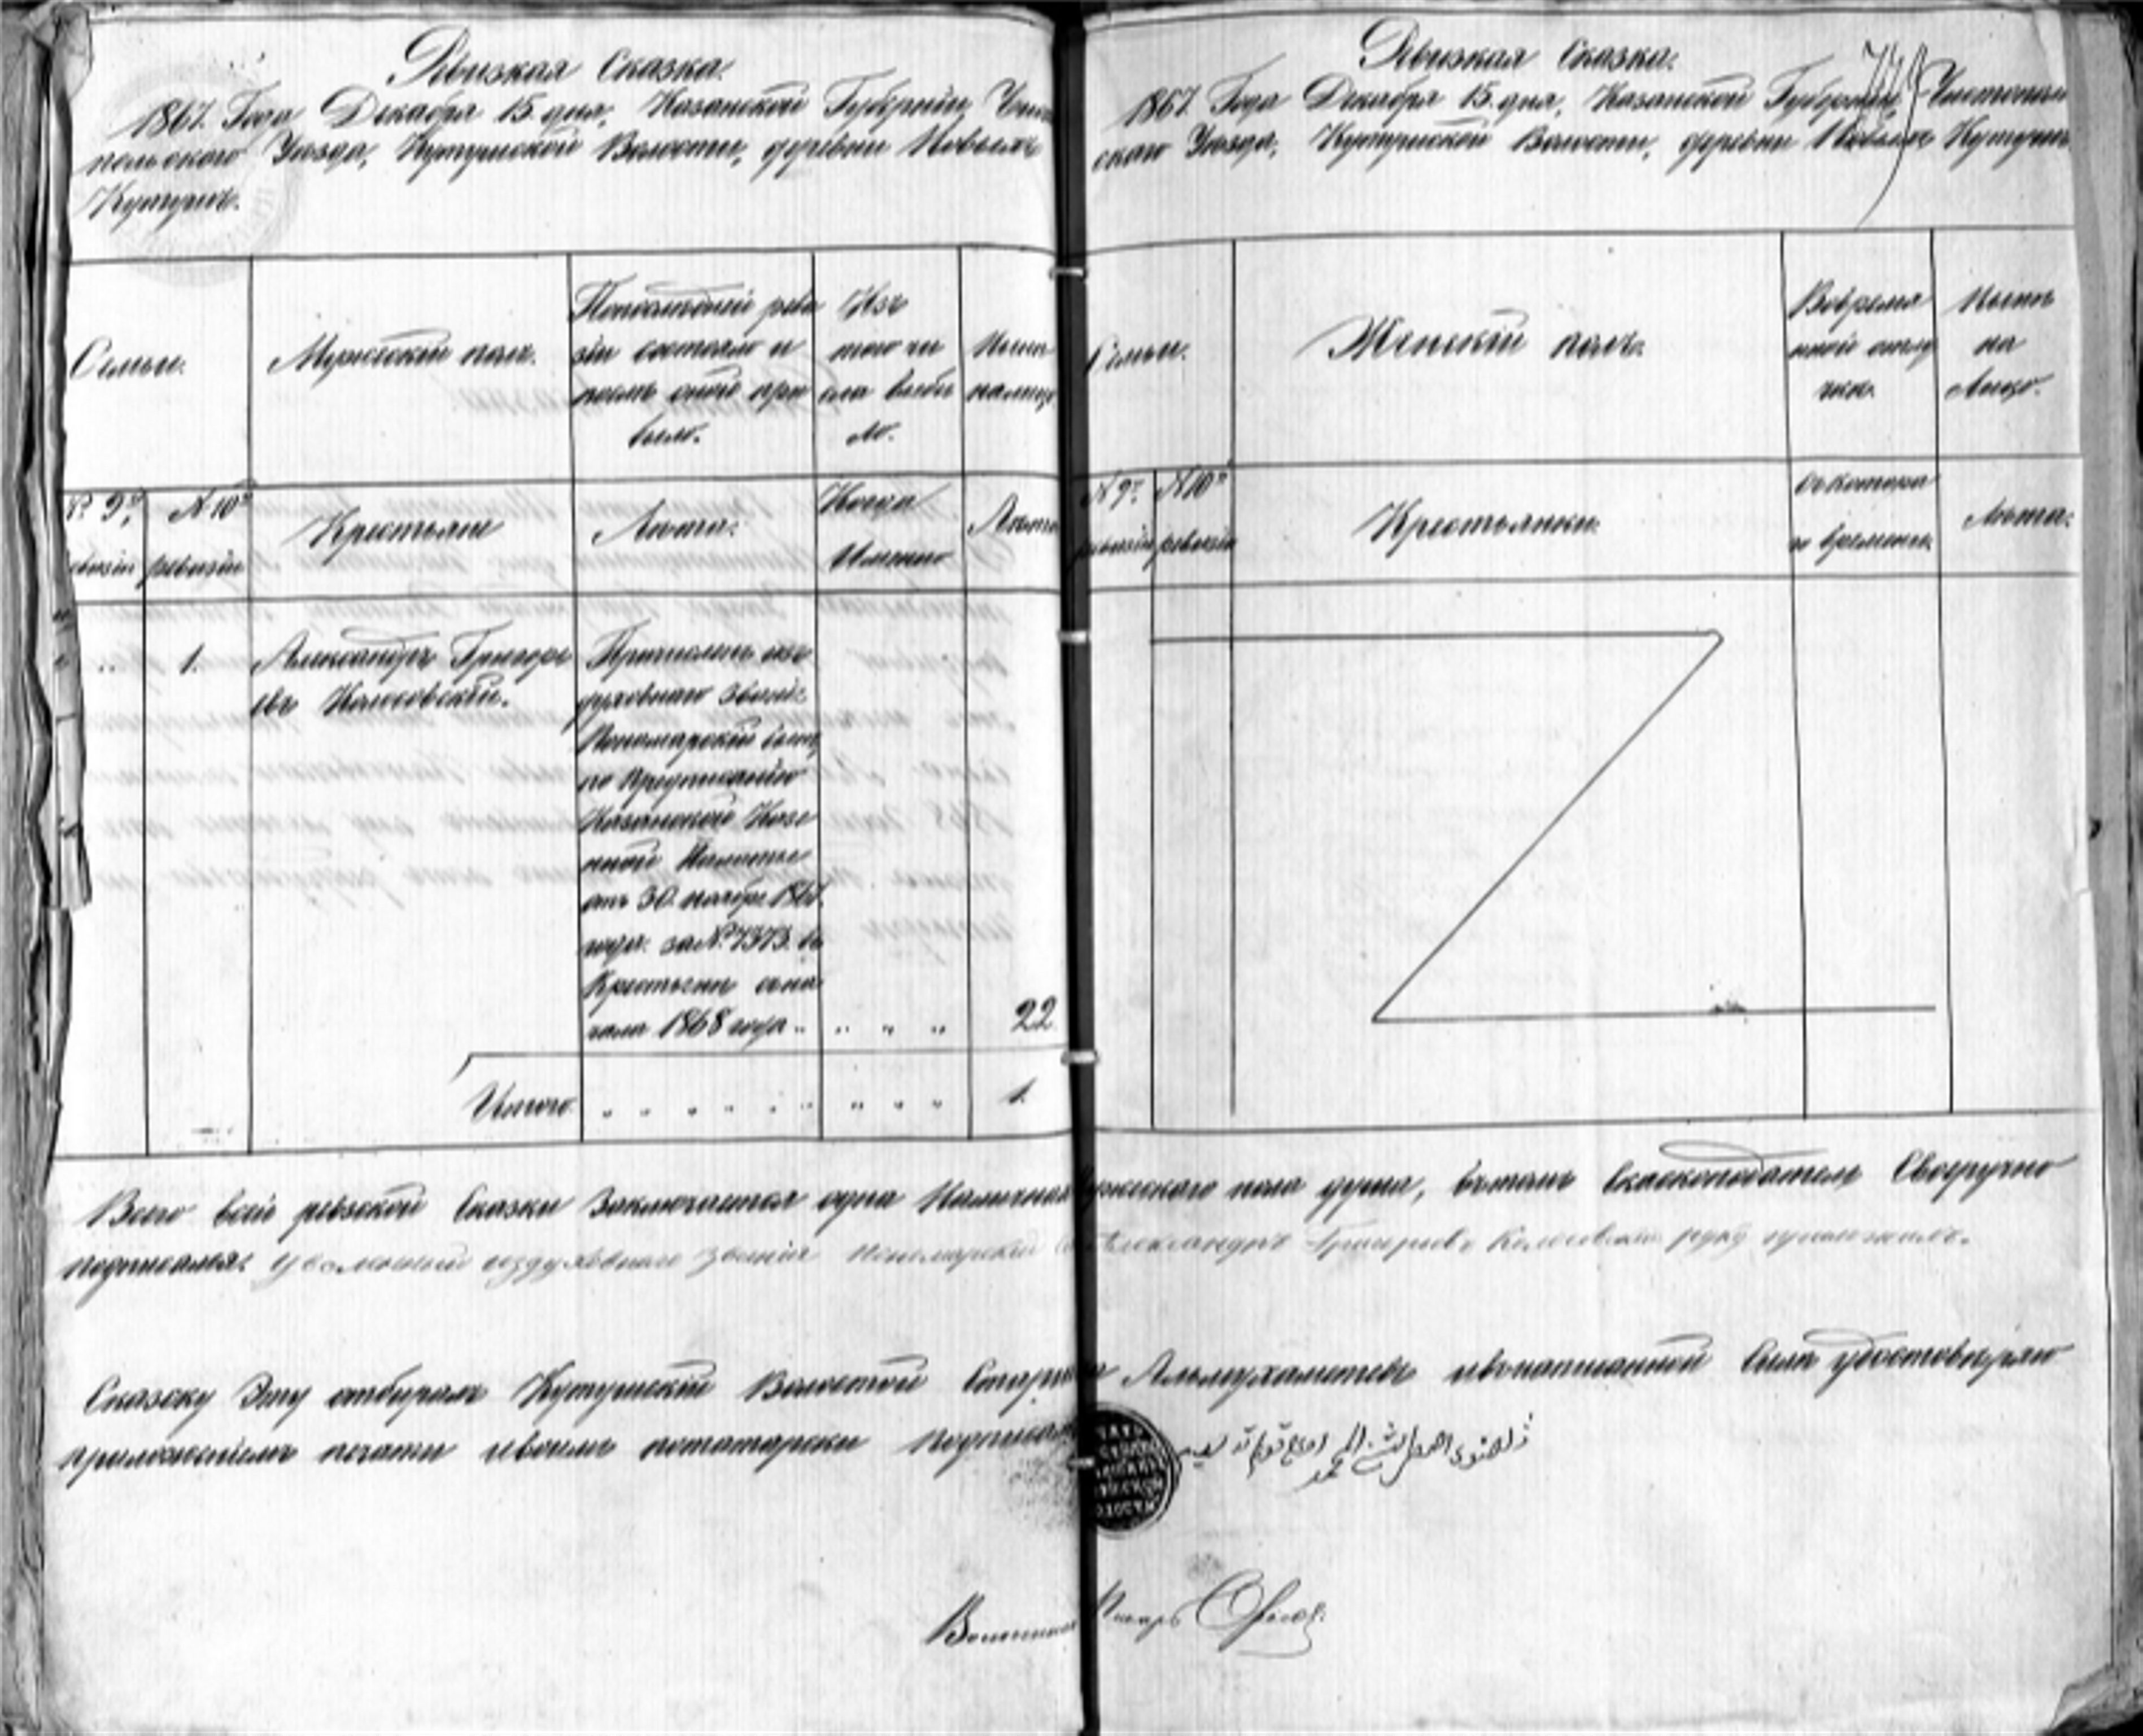 Ревизкая Сказка.
1867. Года Декабря 15. дня, Казанской Губерніи, Чисто
польскаго Уезда, Кутушской Волости, деревни Новыхъ
Кутушъ.
Семьи.
Мужескій полъ.
Попоследней реви
зіи состояло и
после оной при
было.
Изъ
того чи
сла выбы
ло.
Ныне
налицо
№ 9й
ревизіи
№ 10й
ревизіи
Крестьяне
Лета.
Когда
Именно
Лета
1.
Александръ Григорь
евъ Колосовскій.
Причисленъ изъ
духовнаго званія
Пономарскій сынъ
по Предписанію
Казанской Казе
нной Палаты
отъ 30. ноября 1867.
года. за №. 7373. въ
Крестьяни съна
чала 1868 года
22
Итого
1.
Ревизкая Сказка.
1867. Года Декабря 15. дня, Казанской Губерніи, Чистополь
скаго Уезда, Кутушской Волости, деревни Новыхъ Кутушъ
Семьи.
Женскій полъ.
Вовремя
нной отлу
чки.
Ныне
на
Лицо.
№ 9й
ревизіи
№ 10й
ревизіи
Крестьянки
Съ котора
го времени.
Лета.
Всего всей ревзской Сказки Заключается одна Наличная мужескаго пола душа, въ томъ Сказкоподатель Своеручно
подписался: уволенный издуховнаго званія пономарскій сынъ Александръ Григорьевъ Колосовскій руку приложилъ.
Сказску Эту отбиралъ Кутушскій Волостной Старшина Альмухаметевъ ивъ написанной Силе удостоверяю
приложеніемъ печати исвоимъ потатарски подписомъ
Волостной Писарь